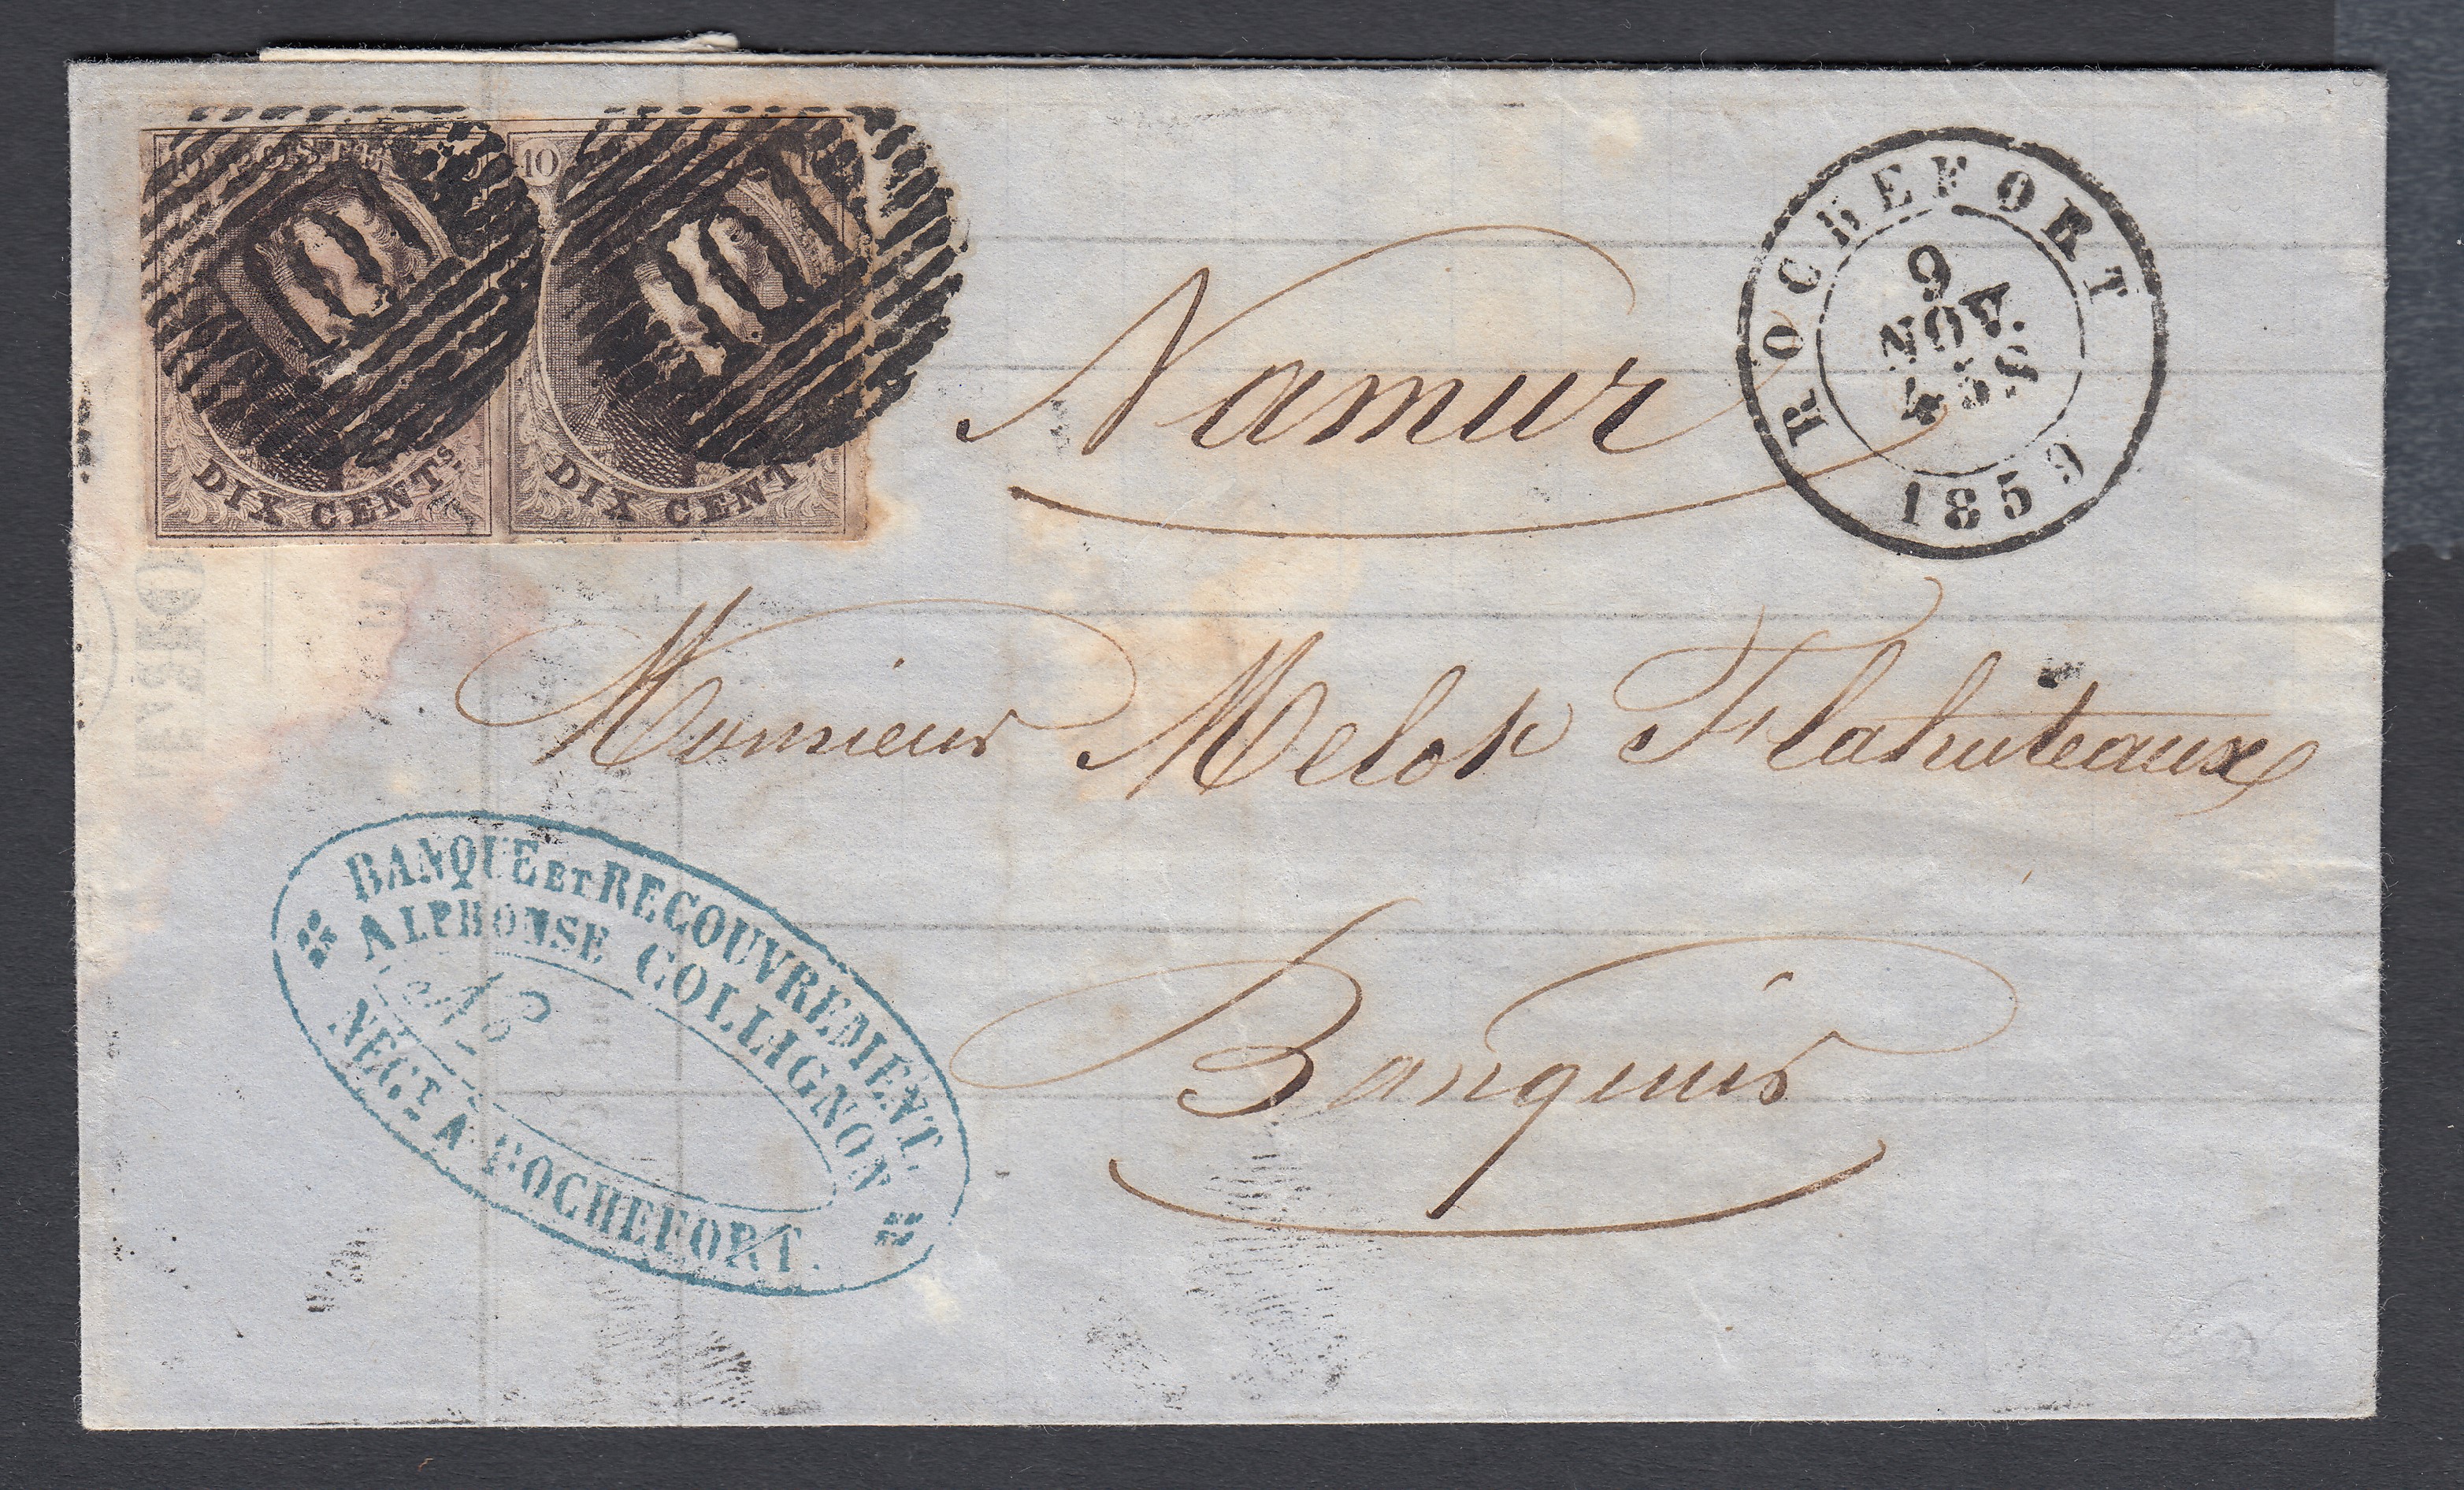 10 POSTES
10
DIX CENTS.
DIX CENT
101
101
ROCHEFORT
9
NOV.
1859
Namur
Monsieur Melot Flahuteaux
Banquier
BANQUE ET RECOUVREMENT.
ALPHONSE COLLIGNON
NÉGT. A ROCHEFORT.